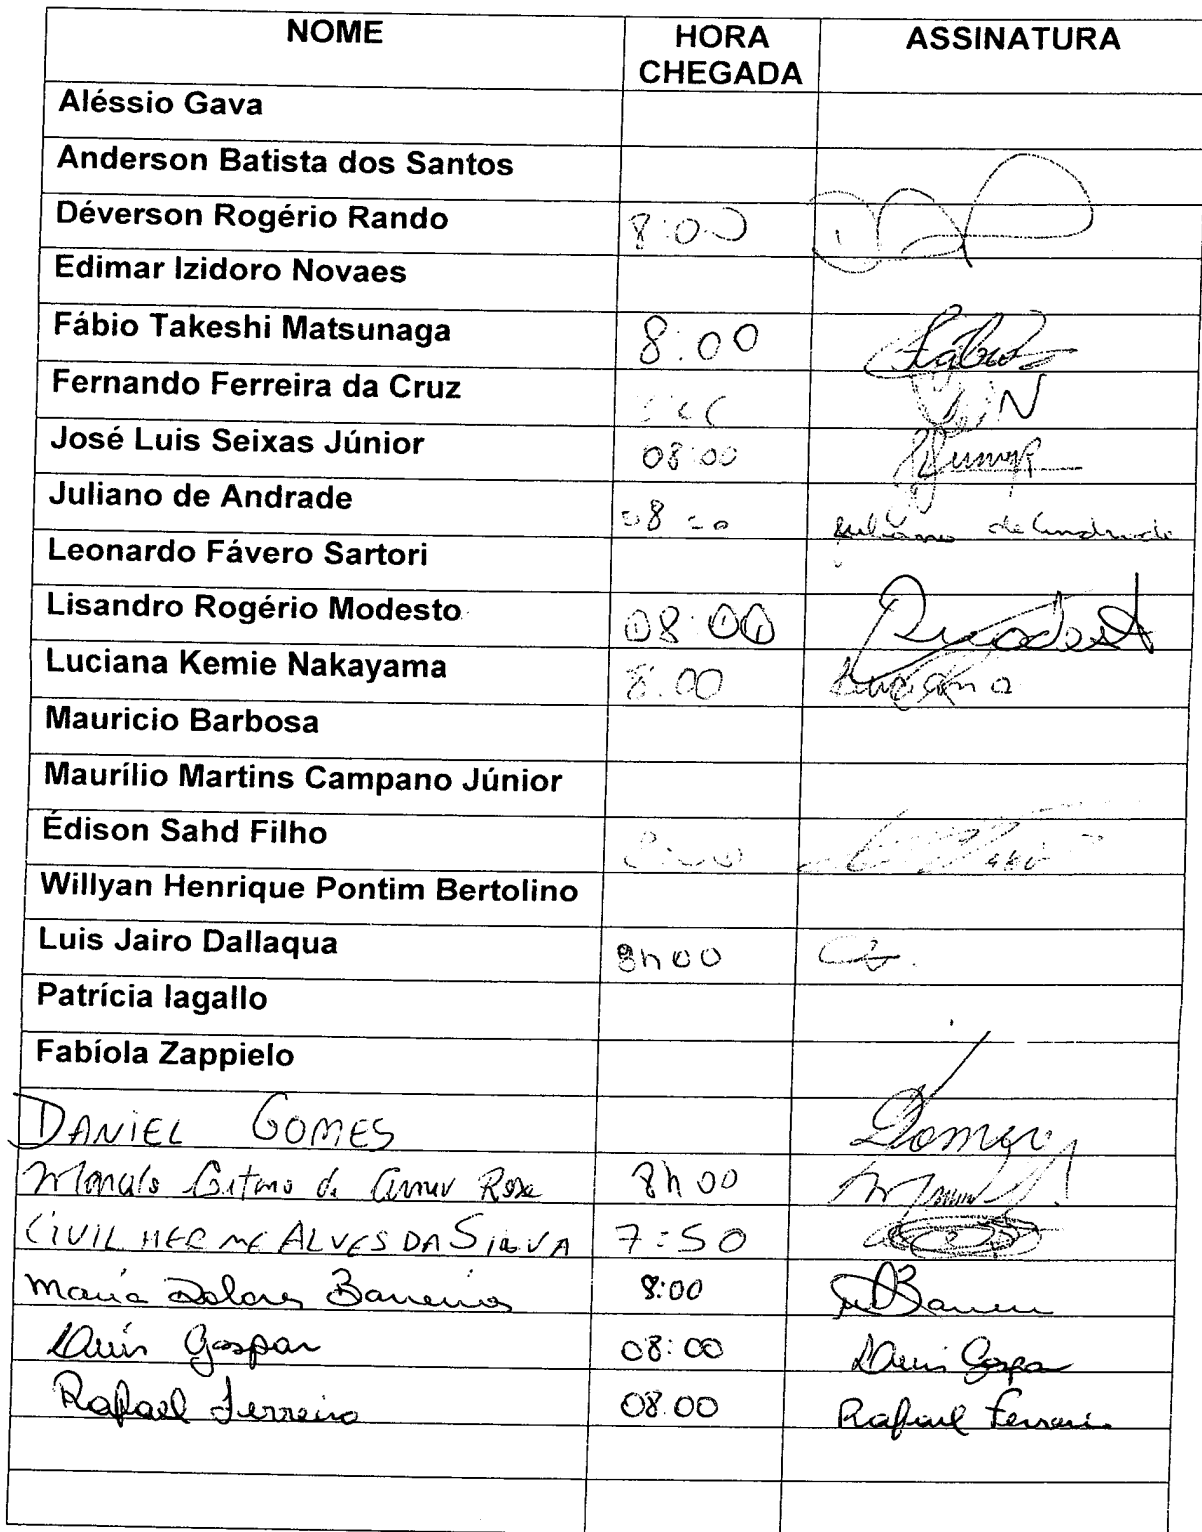 NOME HORA CHEGADA ASSINATURA
Aléssio Gava
Anderson Batista dos Santos
Déverson Rogério Rando 8:00
Edimar Izidoro Novaes
Fábio Takeshi Matsunaga 8:00
Fernando Ferreira da Cruz
José Luis Seixas Júnior 08:00
Juliano de Andrade Juliano de Andrade
Leonardo Fávero Sartori
Lisandro Rogério Modesto 08:00
Luciana Kemie Nakayama 8:00 Luciana
Mauricio Barbosa
Maurílio Martins Campano Júnior
Édison Sahd Filho
Willyan Henrique Pontim Bertolino
Luis Jairo Dallaqua 8h00
Patrícia Iagallo
Fabíola Zappielo
DANIEL GOMES
8h00
ALVES DA SILVA 7:50
Maria Dolores 8:00
Gaspar 08:00
Rafael Ferreira 08:00 Rafael